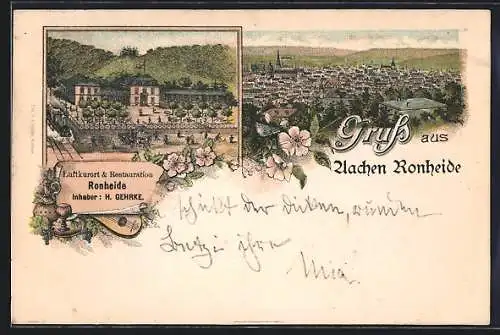 Gruß aus
Aachen Ronheide
Luftkurort & Restauration
Ronheide
Inhaber: H. GEHRKE.
schickt der dicken, runden
ihre